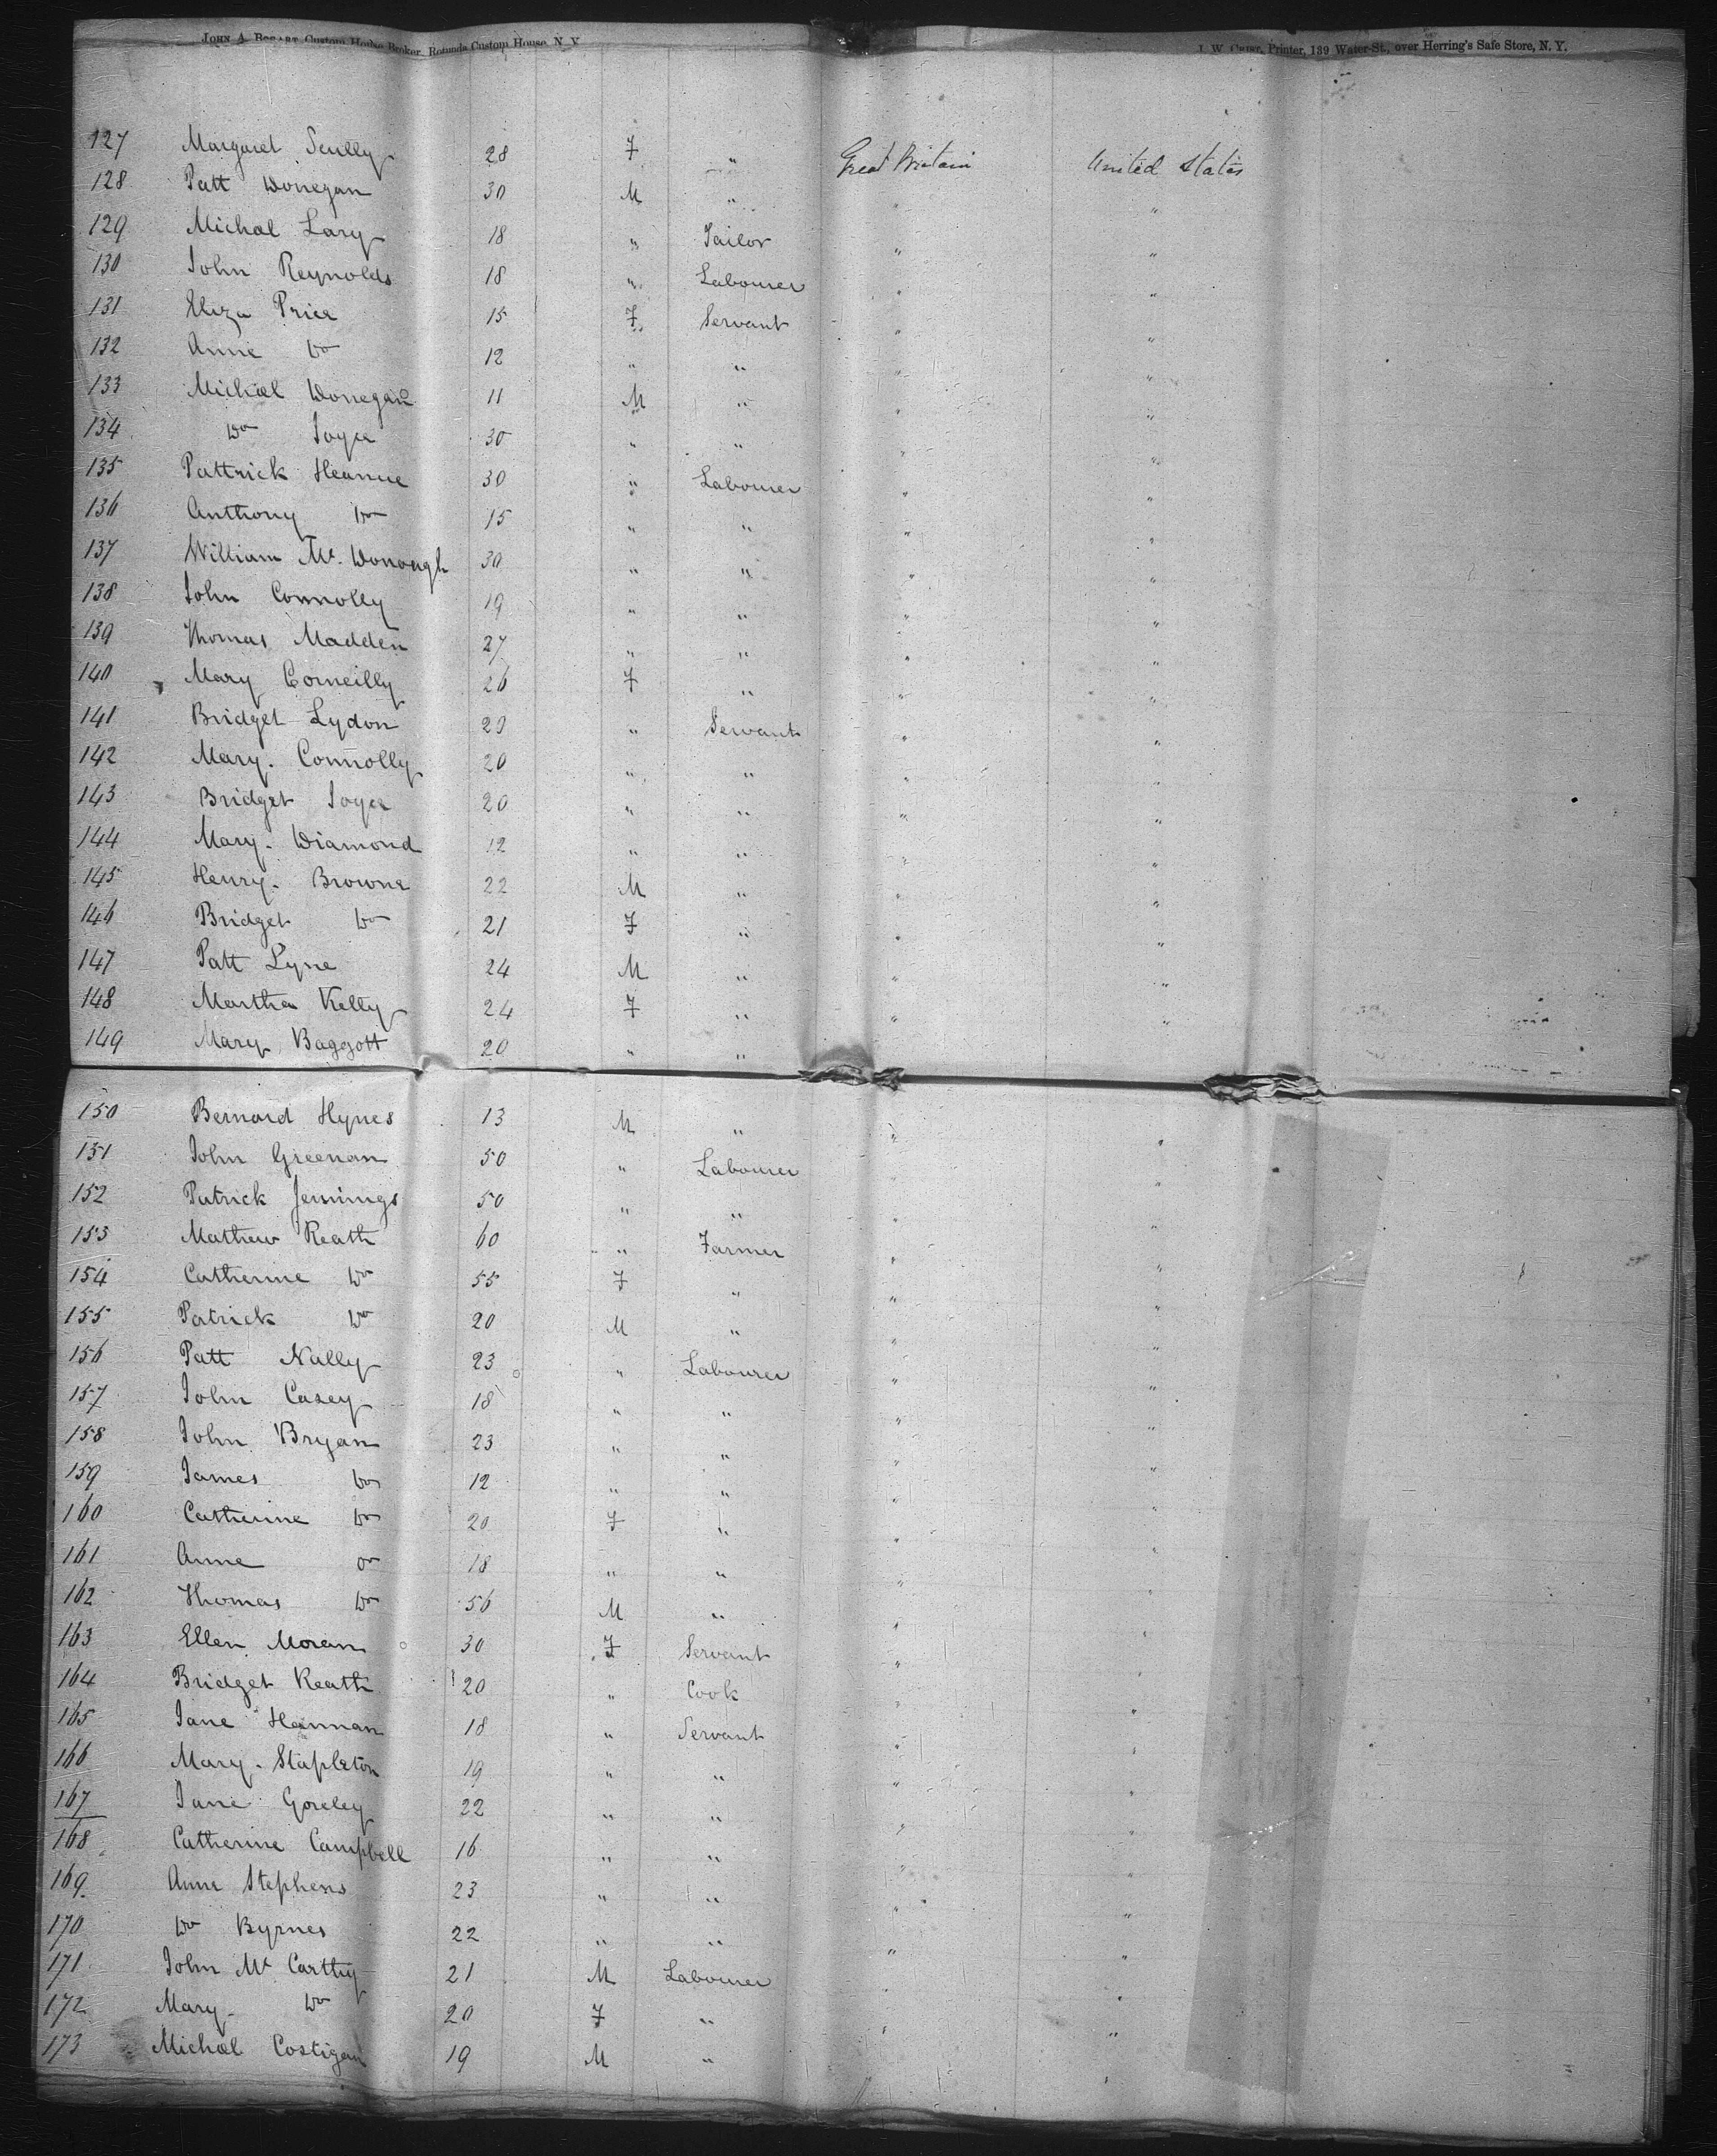 JOHN A. BOGART, Custom House Broker, Rotunda Custom House, N. Y. Printer, 139 Water-St., over Herring's Safe Store, N. Y.
127 Margaret Scully 28 F " Great Britain United States
128 Patt Donegan 30 M " " "
129 Michal Lary 18 " Tailor " "
130 John Reynolds 18 " Labourer " "
131 Eliza Price 15 F Servant " "
132 Anne Do 12 " " " "
133 Michal Donegan 11 M " " "
134 Do Joyce 30 " " " "
135 Pattrick Heanue 30 " Labourer " "
136 Anthony Do 15 " " " "
137 William Mc. Donough 30 " " " "
138 John Connolly 19 " " " "
139 Thomas Madden 27 " " " "
140 Mary Corneilly 26 F " " "
141 Bridget Lydon 20 " Servant " "
142 Mary. Connolly 20 " " " "
143 Bridget Joyce 20 " " " "
144 Mary. Diamond 12 " " " "
145 Henry. Browne 22 M " " "
146 Bridget Do 21 F " " "
147 Patt Lyne 24 M " " "
148 Martha Kelly 24 F " " "
149 Mary Baggott 20 " "
150 Bernard Hynes 13 M " " "
151 John Greenan 50 " Labourer " "
152 Patrick Jennings 50 " " " "
153 Mathew Keath 60 " Farmer " "
154 Catherine Do 55 F " " "
155 Patrick Do 20 M " " "
156 Patt Nally 23 " Labourer " "
157 John Casey 18 " " " "
158 John Bryan 23 " " " "
159 James Do 12 " " " "
160 Catherine Do 20 F " " "
161 Anne Do 18 " " " "
162 Thomas Do 56 M " " "
163 Ellen Moran 30 F Servant " "
164 Bridget Keath 20 " Cook " "
165 Jane Hannan 18 " Servant " "
166 Mary. Stapleton 19 " " " "
167 Jane Goreley 22 " " " "
168 Catherine Campbell 16 " " " "
169 Anne Stephens 23 " " " "
170 Do Byrnes 22 " " " "
171 John Mc Carthy 21 M Labourer " "
172 Mary. Do 20 F " " "
173 Michal Costigan 19 M "